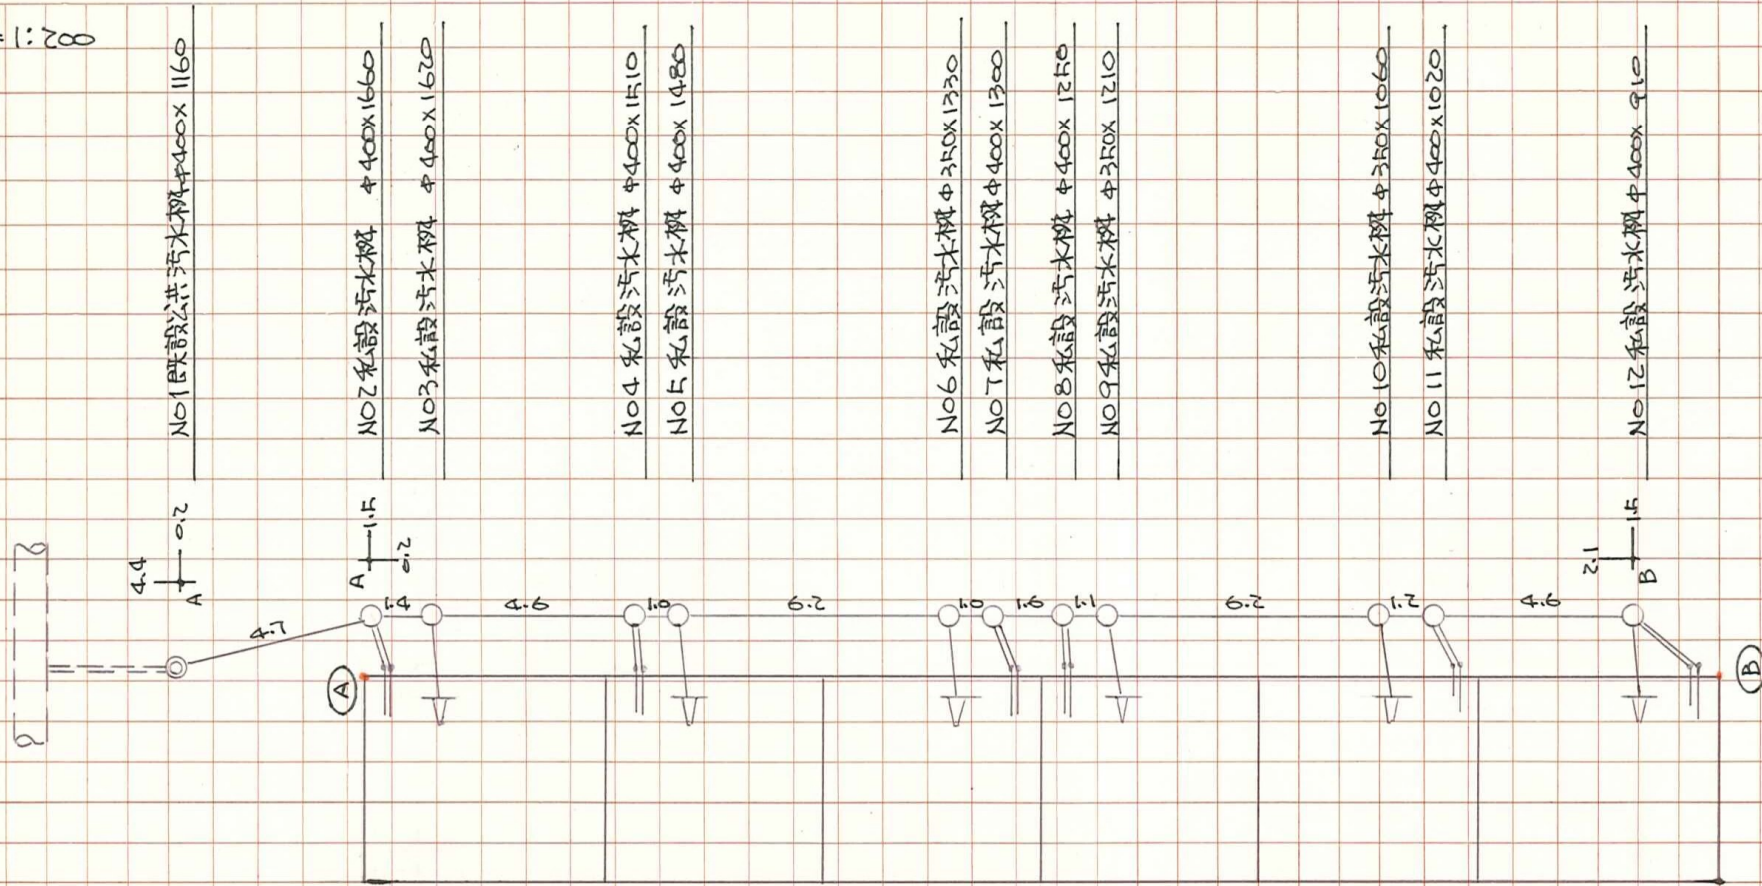 =1:200
NO1既設公共汚水桝φ400×1160
NO2私設汚水桝 φ400×1660
NO3私設汚水桝 φ400×1620
NO4私設汚水桝 φ400×1510
NO5私設汚水桝 φ400×1480
NO6私設汚水桝φ350×1330
NO7私設汚水桝φ400×1300
NO8私設汚水桝 φ400×1250
NO9私設汚水桝 φ350×1210
NO10私設汚水桝φ350×1060
NO11私設汚水桝φ400×1020
NO12私設汚水桝φ400×910
4.4
0.2
A
1.5
0.2
A
2.1
1.5
B
4.7
1.4
4.6
1.0
6.2
1.0
1.6
1.1
6.2
1.2
4.6
A
B